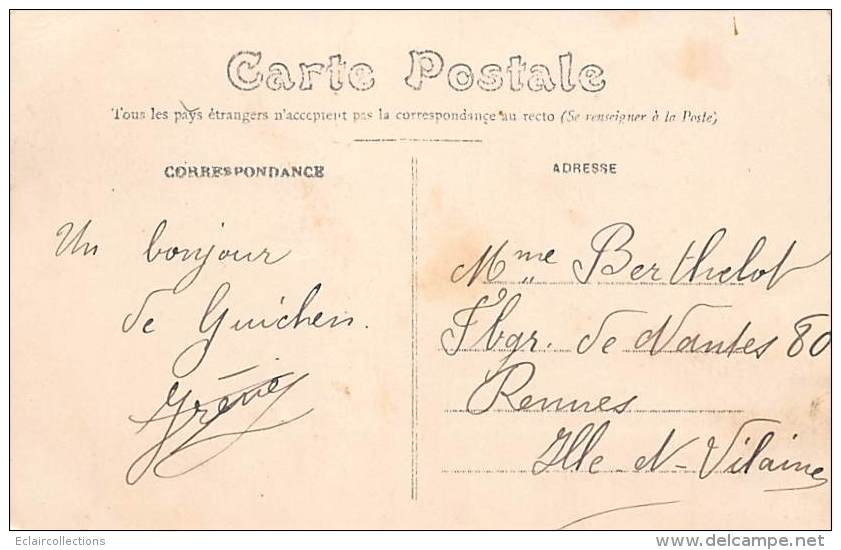 Carte Postale
Tous les pays étrangers n'acceptent pas la correspondance au recto (Se renseigner à la Poste)
CORRESPONDANCE
ADRESSE
Un bonjour
de Guichen.
Mme Berthelot
Fbgr. de Nantes 80
Rennes
Ille et-Vilaine
Eclaircollections
delcampe.net